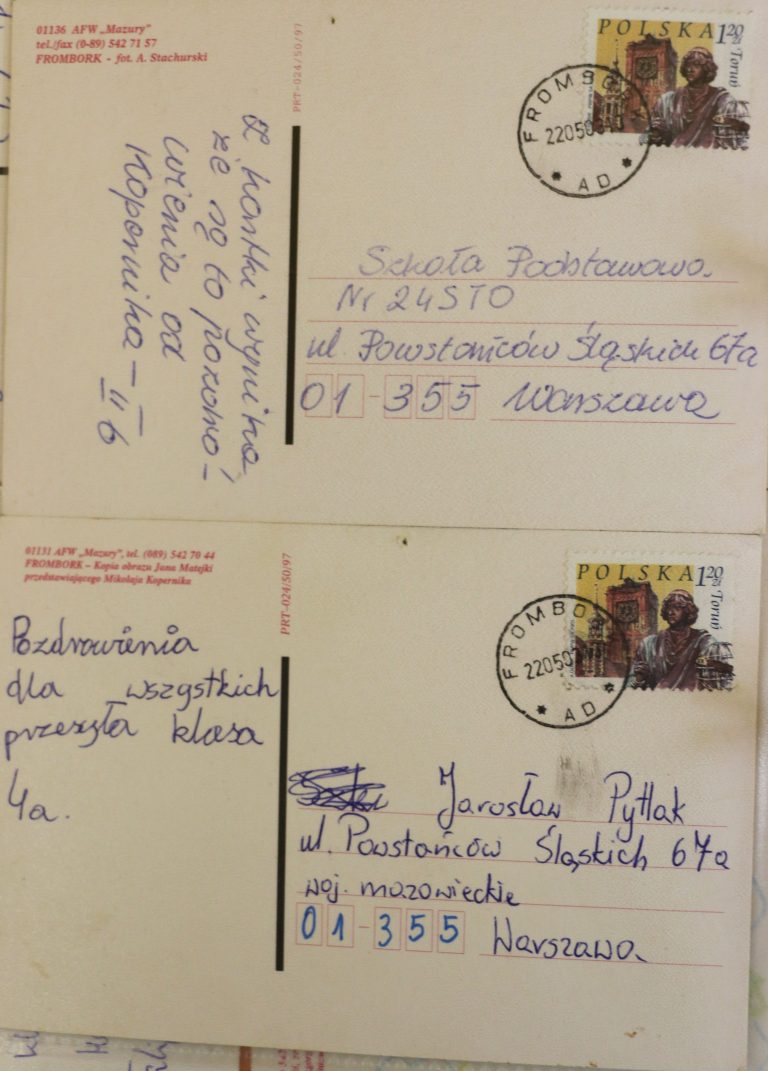 01136 AFW „Mazury"
tel./fax (0-89) 542 71 57
FROMBORK - fot. A. Stachurski
PRT-024/50/97
POLSKA 1,20 zł
Toruń
FROMBORK
220503
* AD *
Z kartki wynika,
że są to pozdro-
wienia od
Kopernika -
II b
Szkoła Podstawowa
Nr 24 STO
ul. Powstańców Śląskich 67a
01-355 Warszawa
01131 AFW „Mazury", tel. (089) 542 70 44
FROMBORK – Kopia obrazu Jana Matejki
przedstawiającego Mikołaja Kopernika
PRT-024/50/97
POLSKA 1,20 zł
Toruń
FROMBORK
220503
* AD *
Pozdrowienia
dla wszystkich
przesyła klasa
4a.
Jarosław Pytlak
ul. Powstańców Śląskich 67a
woj. mazowieckie
01-355 Warszawa.